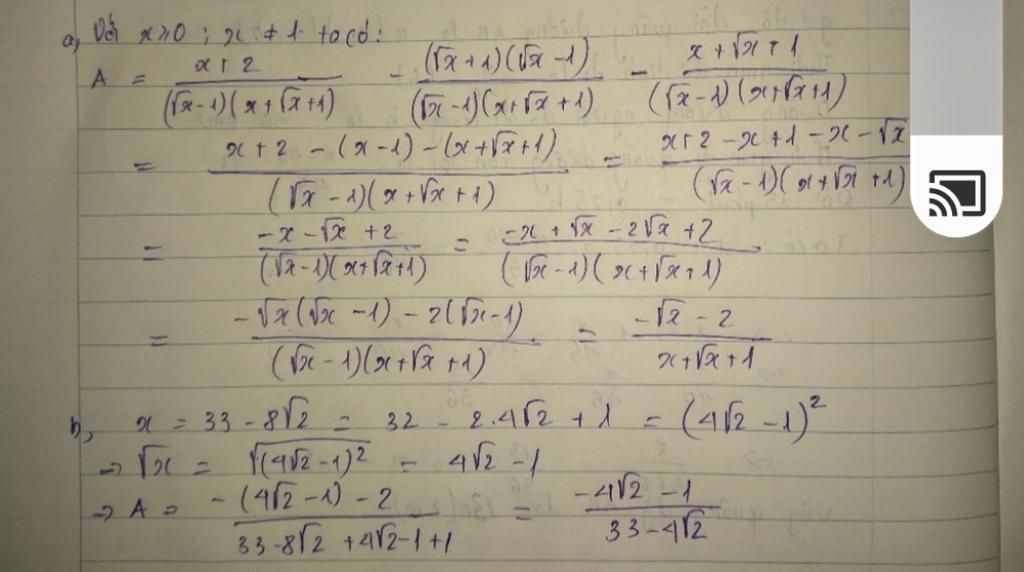 a, Với x ≥ 0 ; x ≠ 1 ta có:
A = (x + 2)/((√x-1)(x+√x+1)) - ((√x+1)(√x-1))/((√x-1)(x+√x+1)) - (x+√x+1)/((√x-1)(x+√x+1))
= (x+2-(x-1)-(x+√x+1))/((√x-1)(x+√x+1)) = (x+2-x+1-x-√x)/((√x-1)(x+√x+1))
= (-x-√x+2)/((√x-1)(x+√x+1)) = (-x+√x-2√x+2)/((√x-1)(x+√x+1))
= (-√x(√x-1)-2(√x-1))/((√x-1)(x+√x+1)) = (-√x-2)/(x+√x+1)
b, x = 33 - 8√2 = 32 - 2.4√2 + 1 = (4√2 - 1)²
→ √x = √((4√2-1)²) = 4√2 - 1
→ A = (-(4√2-1)-2)/(33-8√2+4√2-1+1) = (-4√2-1)/(33-4√2)